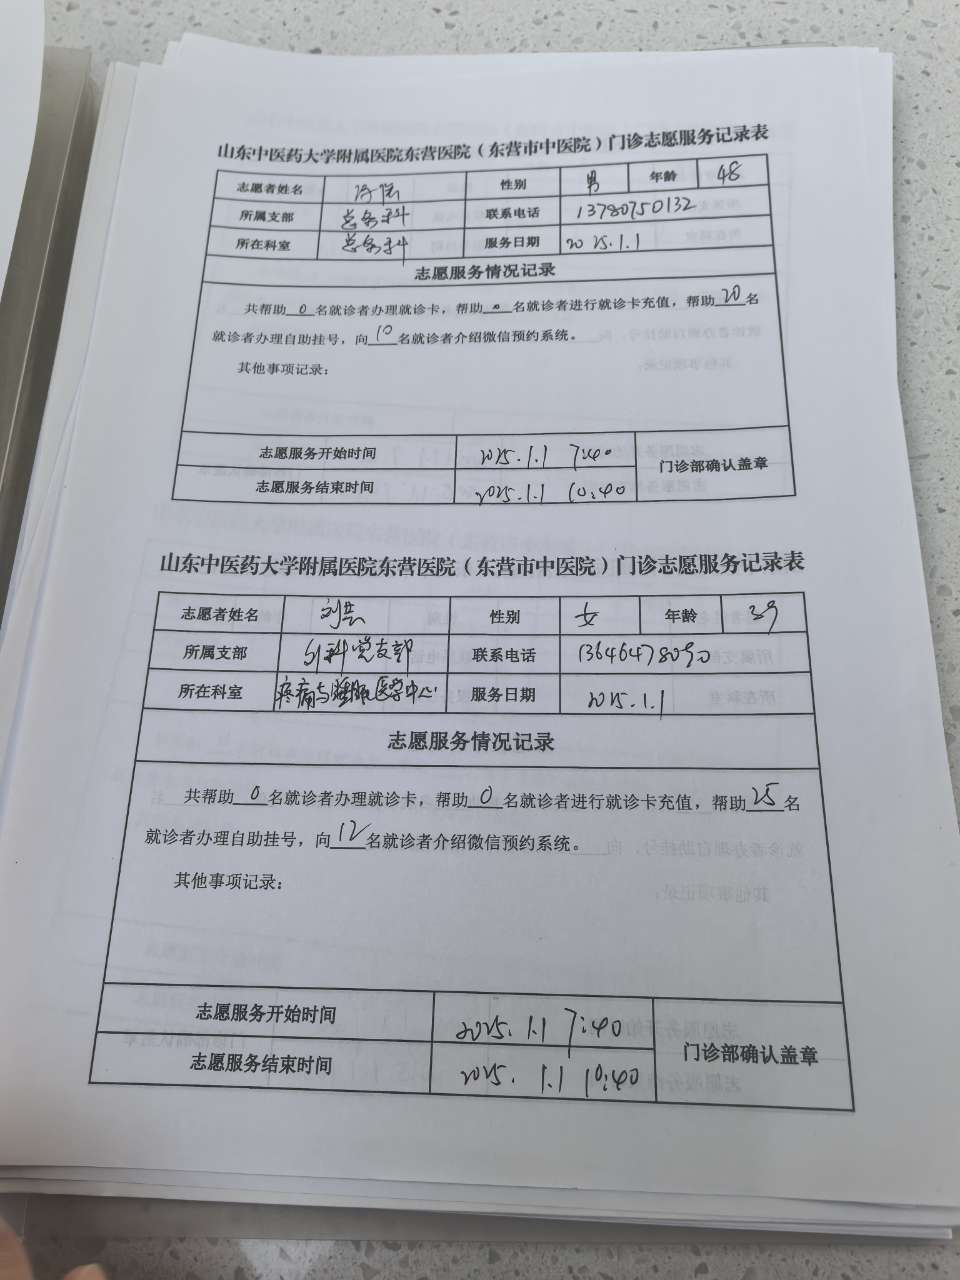 山东中医药大学附属医院东营医院（东营市中医院）门诊志愿服务记录表
志愿者姓名 性别 男 年龄 48
所属支部 总务科 联系电话 13780750132
所在科室 总务科 服务日期 2025.1.1
志愿服务情况记录
共帮助 0 名就诊者办理就诊卡，帮助 0 名就诊者进行就诊卡充值，帮助 20 名
就诊者办理自助挂号，向 10 名就诊者介绍微信预约系统。
其他事项记录：
志愿服务开始时间 2025.1.1 7:40
门诊部确认盖章
志愿服务结束时间 2025.1.1 10:40
山东中医药大学附属医院东营医院（东营市中医院）门诊志愿服务记录表
志愿者姓名 刘芸 性别 女 年龄 39
所属支部 外科党支部 联系电话 13646478090
所在科室 疼痛与睡眠医学中心 服务日期 2025.1.1
志愿服务情况记录
共帮助 0 名就诊者办理就诊卡，帮助 0 名就诊者进行就诊卡充值，帮助 25 名
就诊者办理自助挂号，向 12 名就诊者介绍微信预约系统。
其他事项记录：
志愿服务开始时间 2025.1.1 7:40
门诊部确认盖章
志愿服务结束时间 2025.1.1 10:40